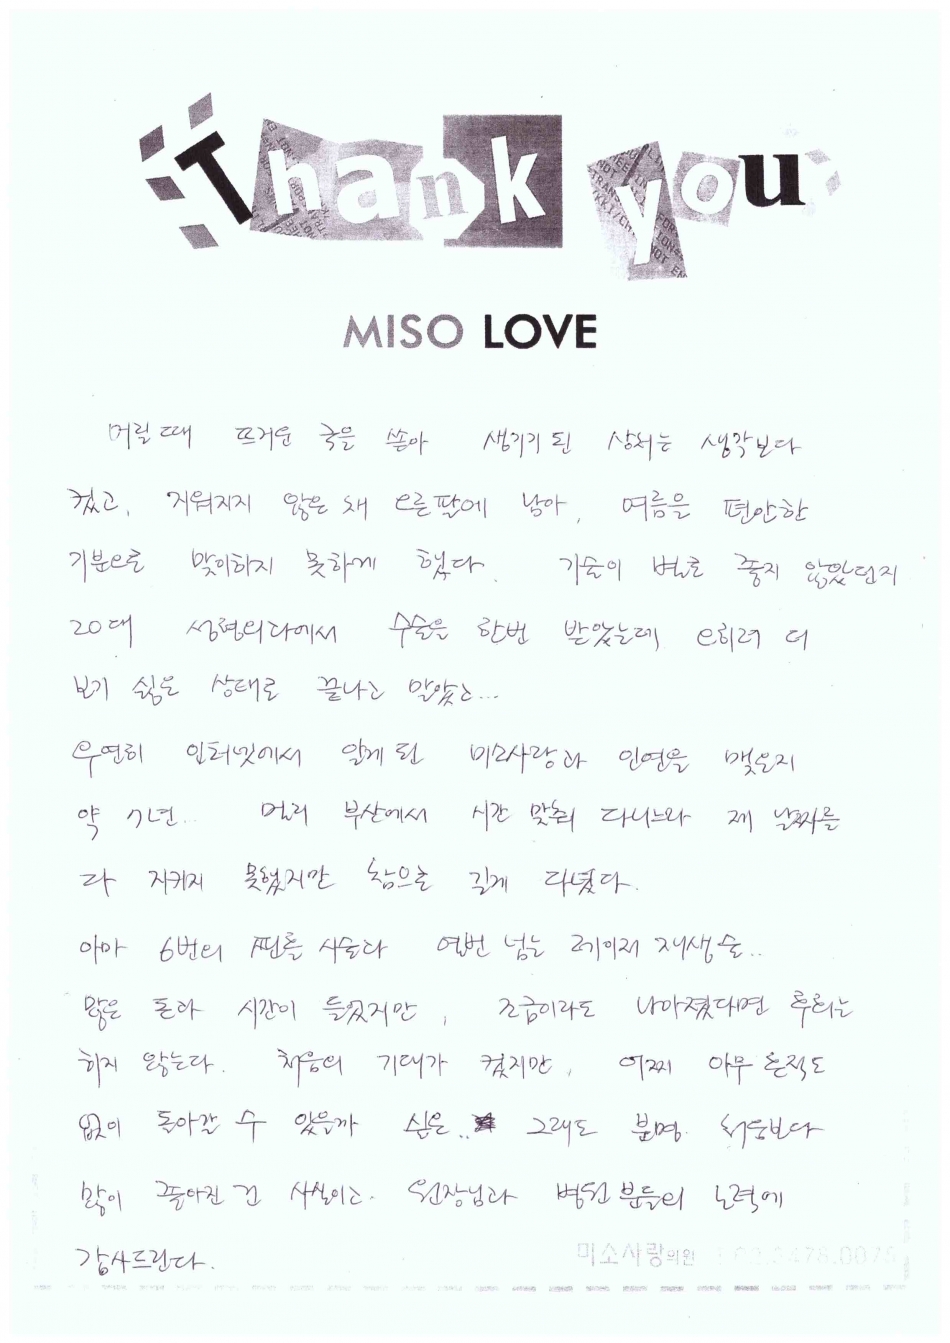 Thank you
MISO LOVE
어릴때 뜨거운 국을 쏟아 생기게 된 상처는 생각보다
컸고, 지워지지 않은 채 오른팔에 남아, 여름을 편안한
기분으로 맞이하지 못하게 했다. 기술이 별로 좋지 않았던지
20대 성형외과에서 수술을 한번 받았는데, 오히려 더
보기 싫은 상태로 끝나고 말았고...
우연히 인터넷에서 알게 된 미소사랑과 인연을 맺은지
약 7년... 멀리 부산에서 시간 맞춰 다니느라 제 날짜를
다 지키지 못했지만 참으로 길게 다녔다.
아마 6번의 핀홀 시술과 열번 넘는 레이저 재생술..
많은 돈과 시간이 들었지만, 조금이라도 나아졌다면 후회는
하지 않는다. 처음의 기대가 컸지만, 어찌 아무 흔적도
없이 돌아갈 수 있을까 싶은.. 그래도 분명 처음보다
많이 좋아진 건 사실이고. 원장님과 병원분들의 노력에
감사드린다.
미소사랑의원 T.02.3478.0075